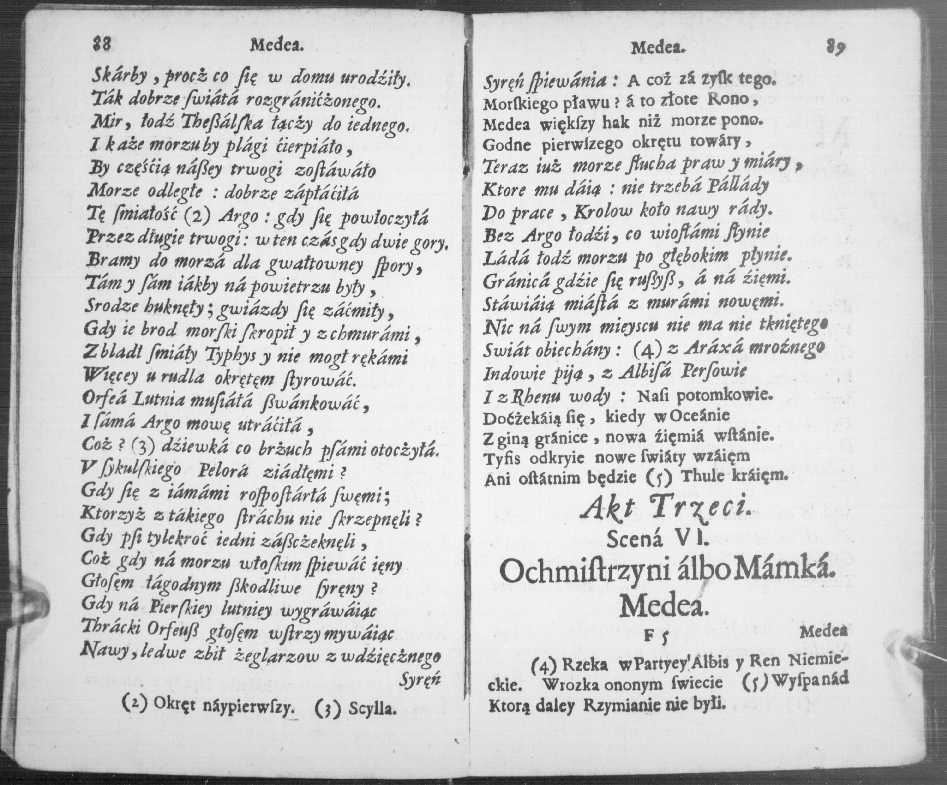 88 Medea.
Skárby, procż co ſię w domu urodźiły.
Ták dobrze ſwiátá rozgránićżonego.
Mir, łodź Theßálſka łącży do iednego.
I każe morzu by plági ćierpiáło,
By cżęśćią náßey trwogi zoſtáwáło
Morze odległe : dobrze zápłáćiłá
Tę ſmiałość (2) Argo : gdy ſię powłoczyłá
Przez długie trwogi : w ten czás gdy dwie gory.
Bramy do morzá dla gwałtowney ſpory,
Tám y ſám iákby ná powietrzu były,
Srodze huknęły; gwiázdy ſię záćmiły,
Gdy ie brod morſki ſkropił y z chmurámi,
Zbladł ſmiáły Typhys y nie mogł rękámi
Więcey u rudla okrętęm ſtyrowáć.
Orfeá Lutnia muſiáłá ßwánkowáć,
I ſámá Argo mowę utráćiłá,
Coż ? (3) dźiewká co brżuch pſámi otoczyłá.
V ſykulſkiego Pelorá ziádłęmi ?
Gdy ſię z iámámi roſpoſtártá ſwęmi;
Ktorzyż z tákiego ſtráchu nie ſkrzepnęli ?
Gdy pſi tylekroć iedni záßcżeknęli,
Coż gdy ná morzu włoſkim ſpiewáć ięny
Głoſęm łágodnym ßkodliwe ſyręny ?
Gdy ná Pierſkiey lutniey wygráwáiąc
Thrácki Orfeuß głoſęm wſtrzymywáiąc
Nawy, ledwe zbił żeglarzow z wdźięcżnego
Syręń
(2) Okręt náypierwſzy. (3) Scylla.
Medea. 89
Syręń ſpiewánia : A coż zá zyſk tego.
Morſkiego pławu ? á to złote Rono,
Medea większy hak niż morze pono.
Godne pierwſzego okrętu towáry,
Teraz iuż morze ſłucha praw y miáry,
Ktore mu dáią : nie trzebá Pállády
Do prace, Krolow koło nawy rády.
Bez Argo łodźi, co wioſłámi ſłynie
Ládá łodź morzu po głębokim płynie.
Gránicá gdźie ſię rußyß, á ná źięmi.
Stáwiáią miáſtá z murámi nowęmi.
Nic ná ſwym mieyscu nie ma nie tkniętego
Swiát obiechány : (4) z Aráxá mroźnego
Indowie piją, z Albiſá Perſowie
I z Rhenu wody : Naſi potomkowie.
Doćżekáią ſię, kiedy w Oceánie
Zginą gránice, nowa źięmiá wſtánie.
Tyfis odkryie nowe ſwiáty wzáięm
Ani oſtátnim będzie (5) Thule kráięm.
Akt Trzeci.
Scená VI.
Ochmiſtrzyni álbo Mámká.
Medea.
F 5 Medea
(4) Rzeka w Partyey Albis y Ren Niemie-
ckie. Wrozka o nonym ſwiecie (5) Wyſpa nád
Ktorą daley Rzymianie nie byłi.